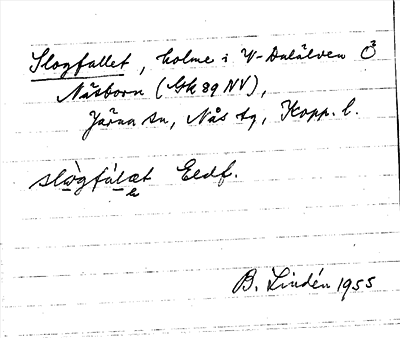 Slogfallet, holme i V-Dalälven
Näsborn (Gk 89 NV),
Järna sn, Nås tg, Kopp. l.
slògfàlæt
B. Lindén 1955